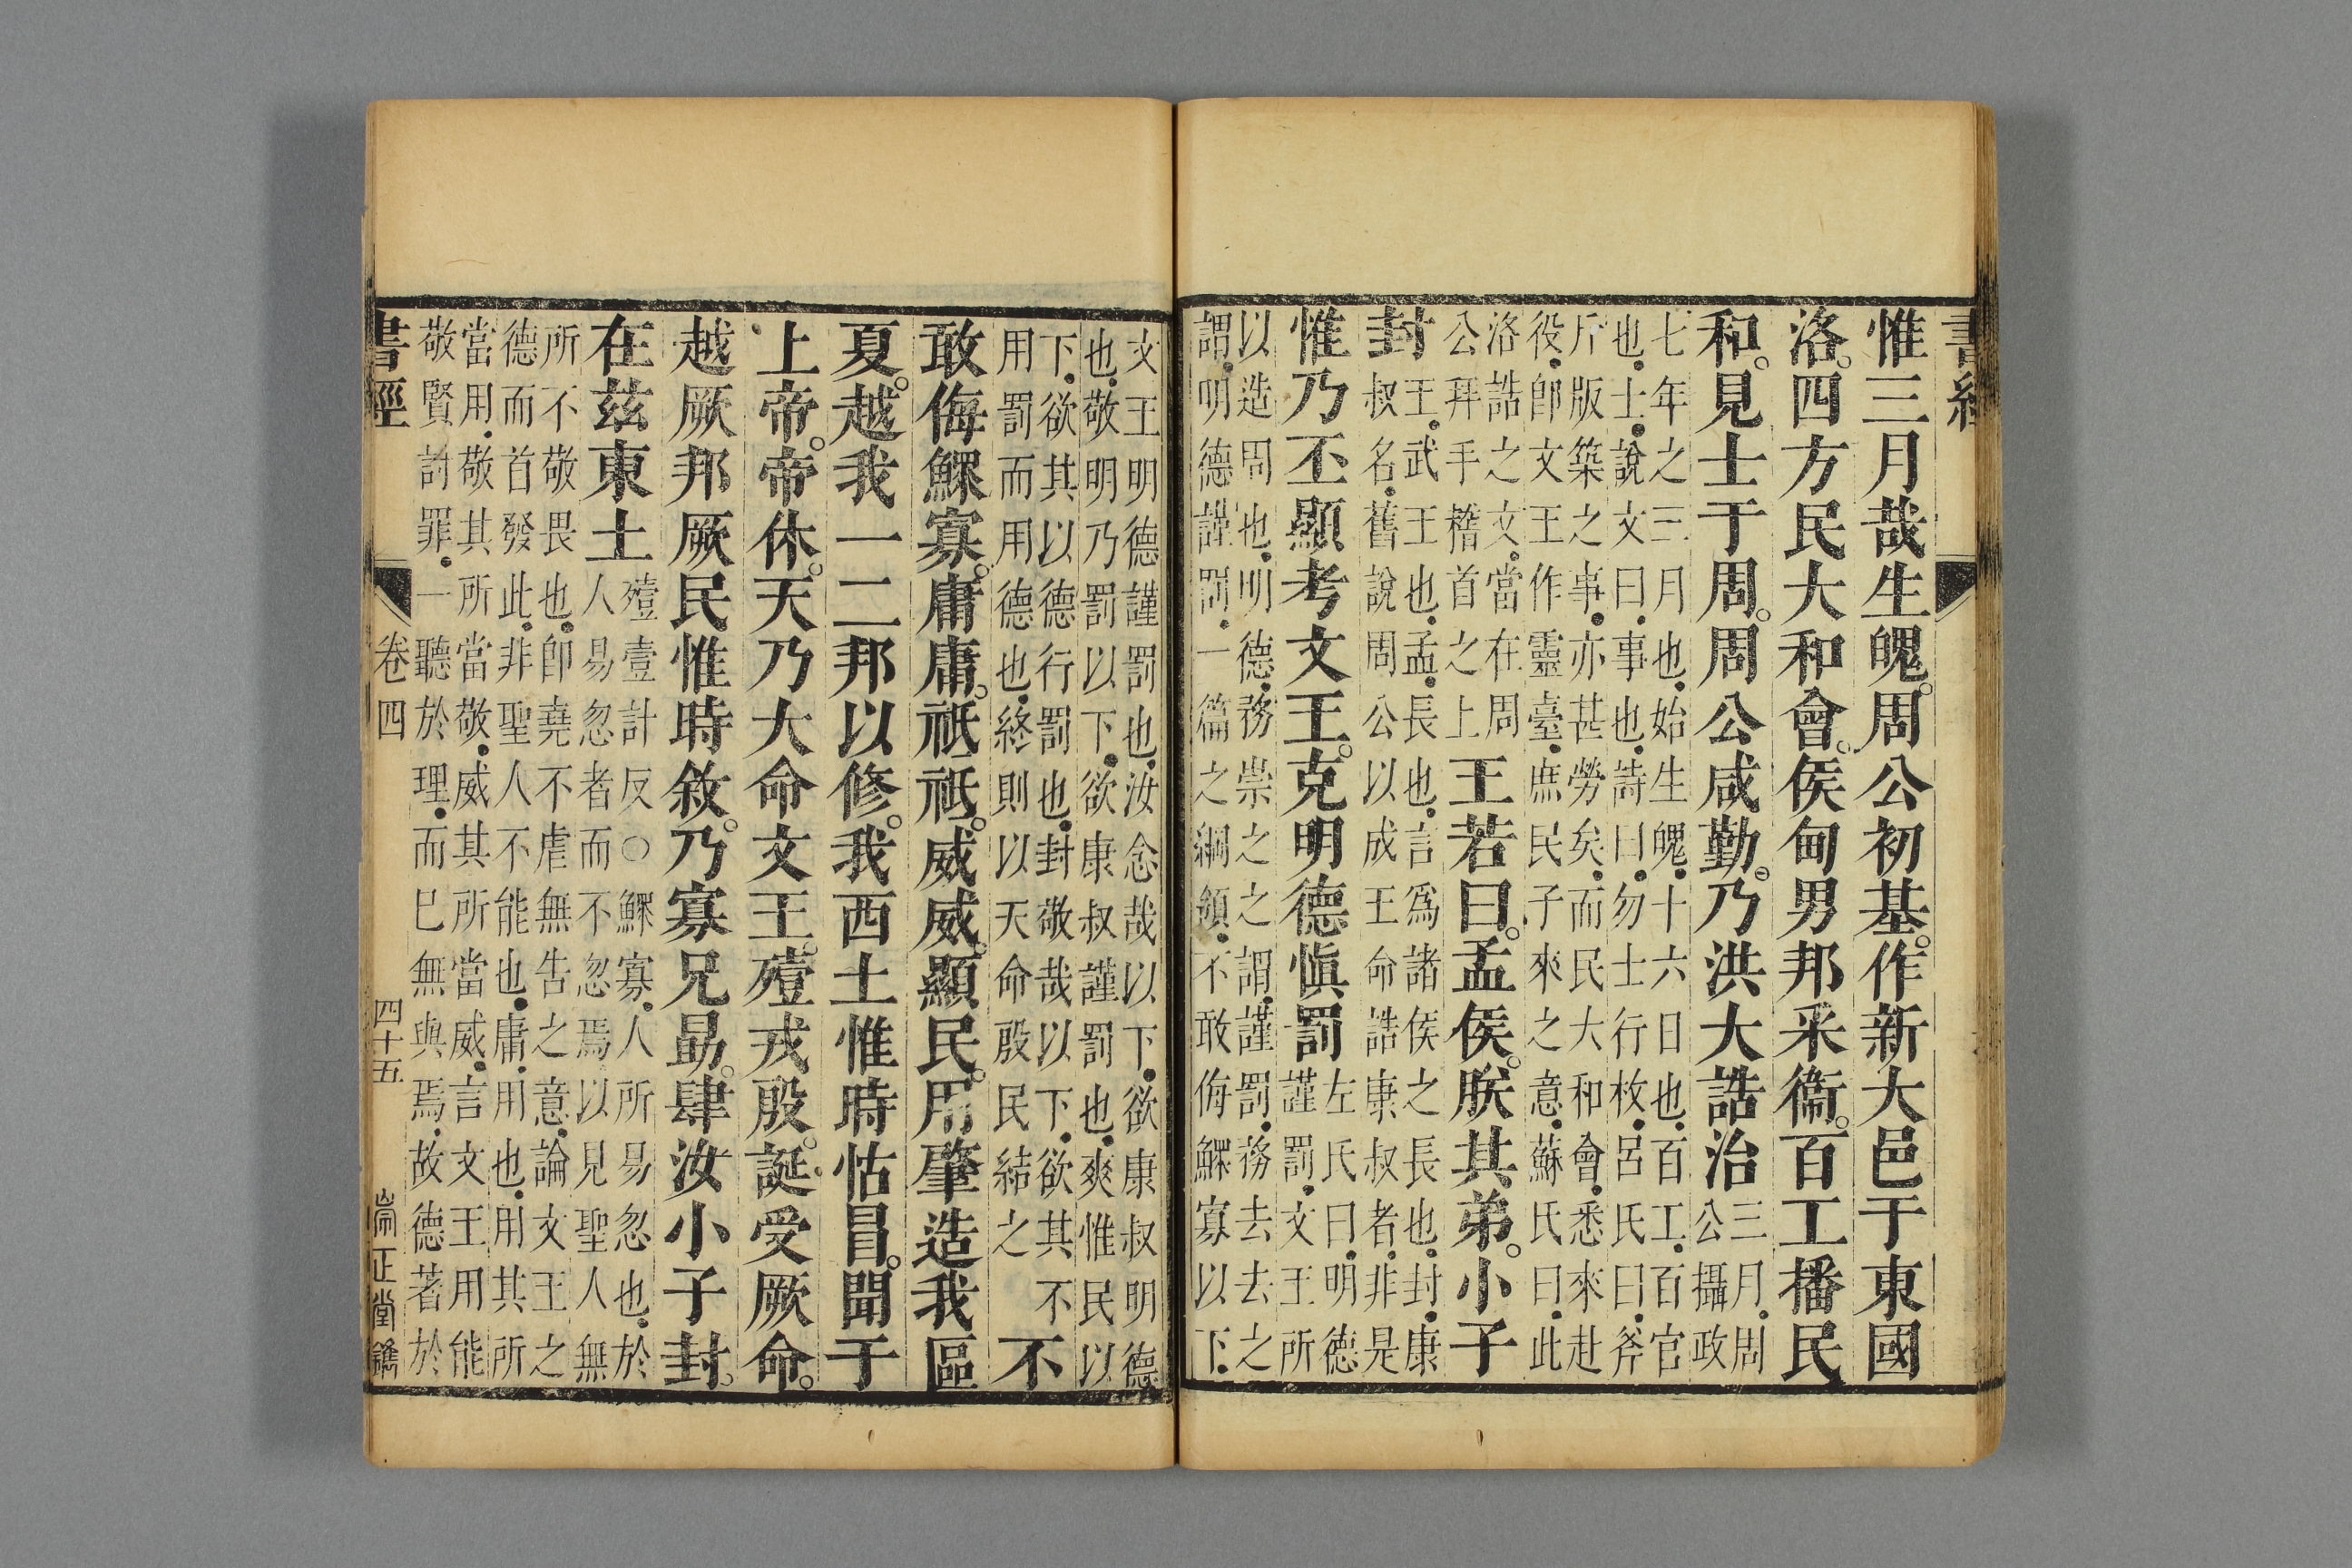 書經
惟三月哉生魄周公初基作新大邑于東國
洛四方民大和會侯甸男邦采衞百工播民
和見士于周周公咸勤乃洪大誥治三月周
公攝政
七年之三月也始生魄十六日也百工百官
也士說文曰事也詩曰勿士行枚呂氏曰斧
斤版築之事亦甚勞矣而民大和會悉來赴
役卽文王作靈臺庶民子來之意蘇氏曰此
洛誥之文當在周
公拜手稽首之上王若曰孟侯朕其弟小子
封王武王也孟長也言爲諸侯之長也封康
叔名舊說周公以成王命誥康叔者非是
惟乃丕顯考文王克明德愼罰左氏曰明德
謹罰文王所
以造周也明德務崇之之謂謹罰務去去之
謂明德謹罰一篇之綱領不敢侮鰥寡以下
文王明德謹罰也汝念哉以下欲康叔明德
也敬明乃罰以下欲康叔謹罰也爽惟民以
下欲其以德行罰也封敬哉以下欲其不
用罰而用德也終則以天命殷民結之不
敢侮鰥寡庸庸祗祗威威顯民用肇造我區
夏越我一二邦以修我西土惟時怙冒聞于
上帝帝休天乃大命文王殪戎殷誕受厥命
越厥邦厥民惟時敘乃寡兄勗肆汝小子封
在茲東土殪壹計反○鰥寡人所易忽也於
人易忽者而不忽焉以見聖人無
所不敬畏也卽堯不虐無告之意論文王之
德而首發此非聖人不能也庸用也用其所
當用敬其所當敬威其所當威言文王用能
敬賢討罪一聽於理而已無與焉故德著於
書經 卷四 四十五 崇正堂鐫